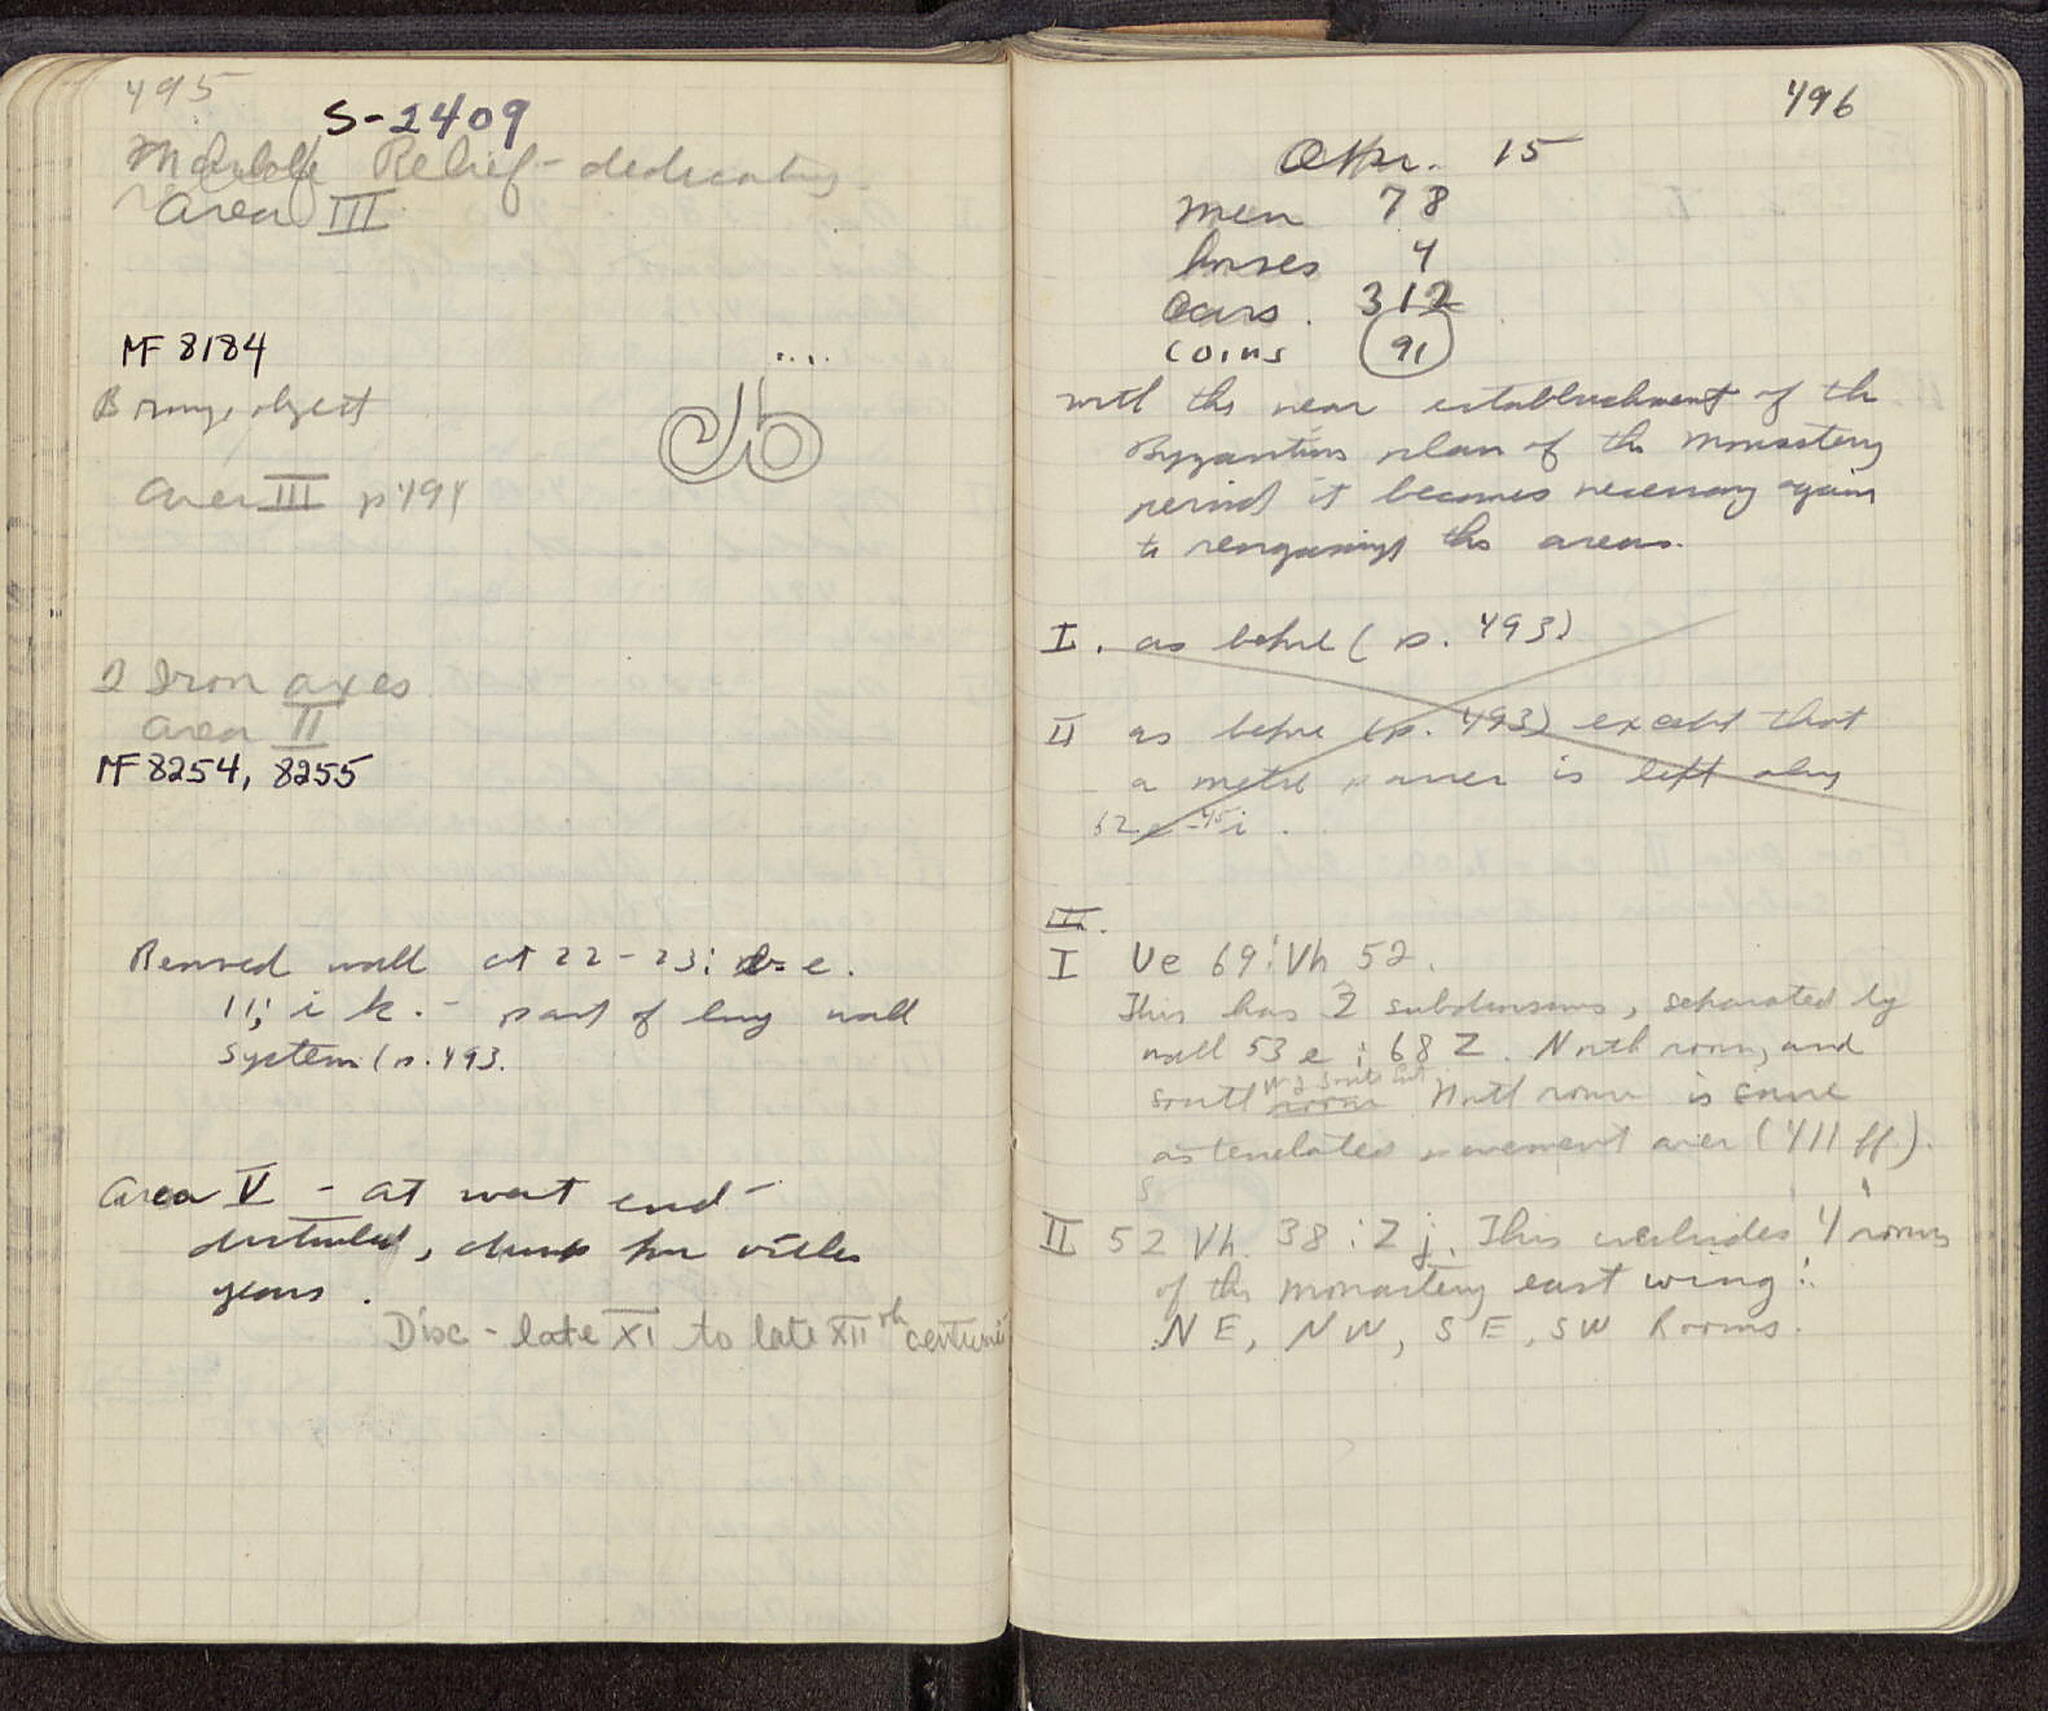 495
S-2409
Marble Relief - dedicatory
Area III
MF 8184
Bronze object
Area III p 494
2 Iron axes
area II
MF 8254, 8255
Removed wall at 22-23: e.
11; i k. - part of long wall
system (p. 493.
Area V - at west end -
disturbed, dump for
years.
Disc - late XI to late XIIth centuries
496
15
men 78
horses 4
cars. 312
coins 91
with the near establishment of the
Byzantine plan of the monastery
period it becomes necessary again
to reorganize the areas.
I. as before (p. 493)
II as before (p. 493) except that
a metre is left along
62 - 45 i.
III.
I Ve 69 : Vh 52.
This has 2 subdivisions, separated by
wall 53 e : 68 Z. North room, and
south room North room is same
as pavement area (411 ff.).
II 52 Vh. 38 : Z j. This includes 4 rooms
of the monastery east wing:
NE, NW, SE, SW Rooms.